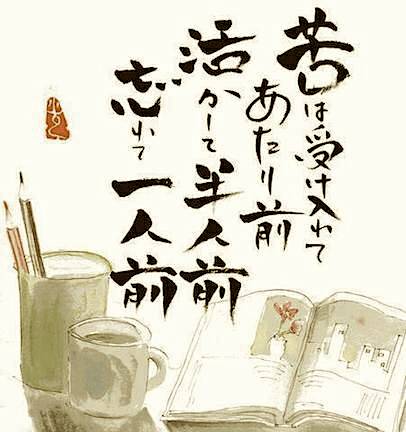 苦は受け入れて
あたり前
活かして
半人前
忘れて
一人前